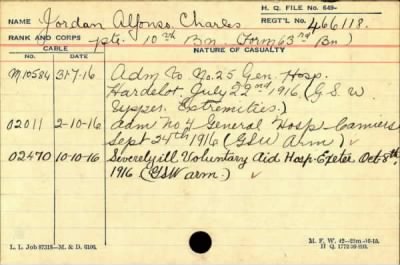 H. Q. FILE No. 649-
NAME Jordan Alfonso Charles REGT'L No. 466118.
RANK AND CORPS Pte. 10th Bn (Form 63rd Bn)
CABLE NATURE OF CASUALTY
No. DATE
M10584 31-7-16 Adm to No. 25 Gen. Hosp.
Hardelot, July 22nd 1916 (G.S.W
Upper Extremities.)
02011 2-10-16 Adm No 4 General Hosp Camiers
Sept 24th 1916 (GSW Arm)
02470 10-10-16 Severely ill Voluntary Aid Hosp. Exeter Oct. 8th
1916 (GSW arm.)
L. L. Job 87318—M. & D. 6106.
M. F. W. 42-
H Q. 1772-39-893.